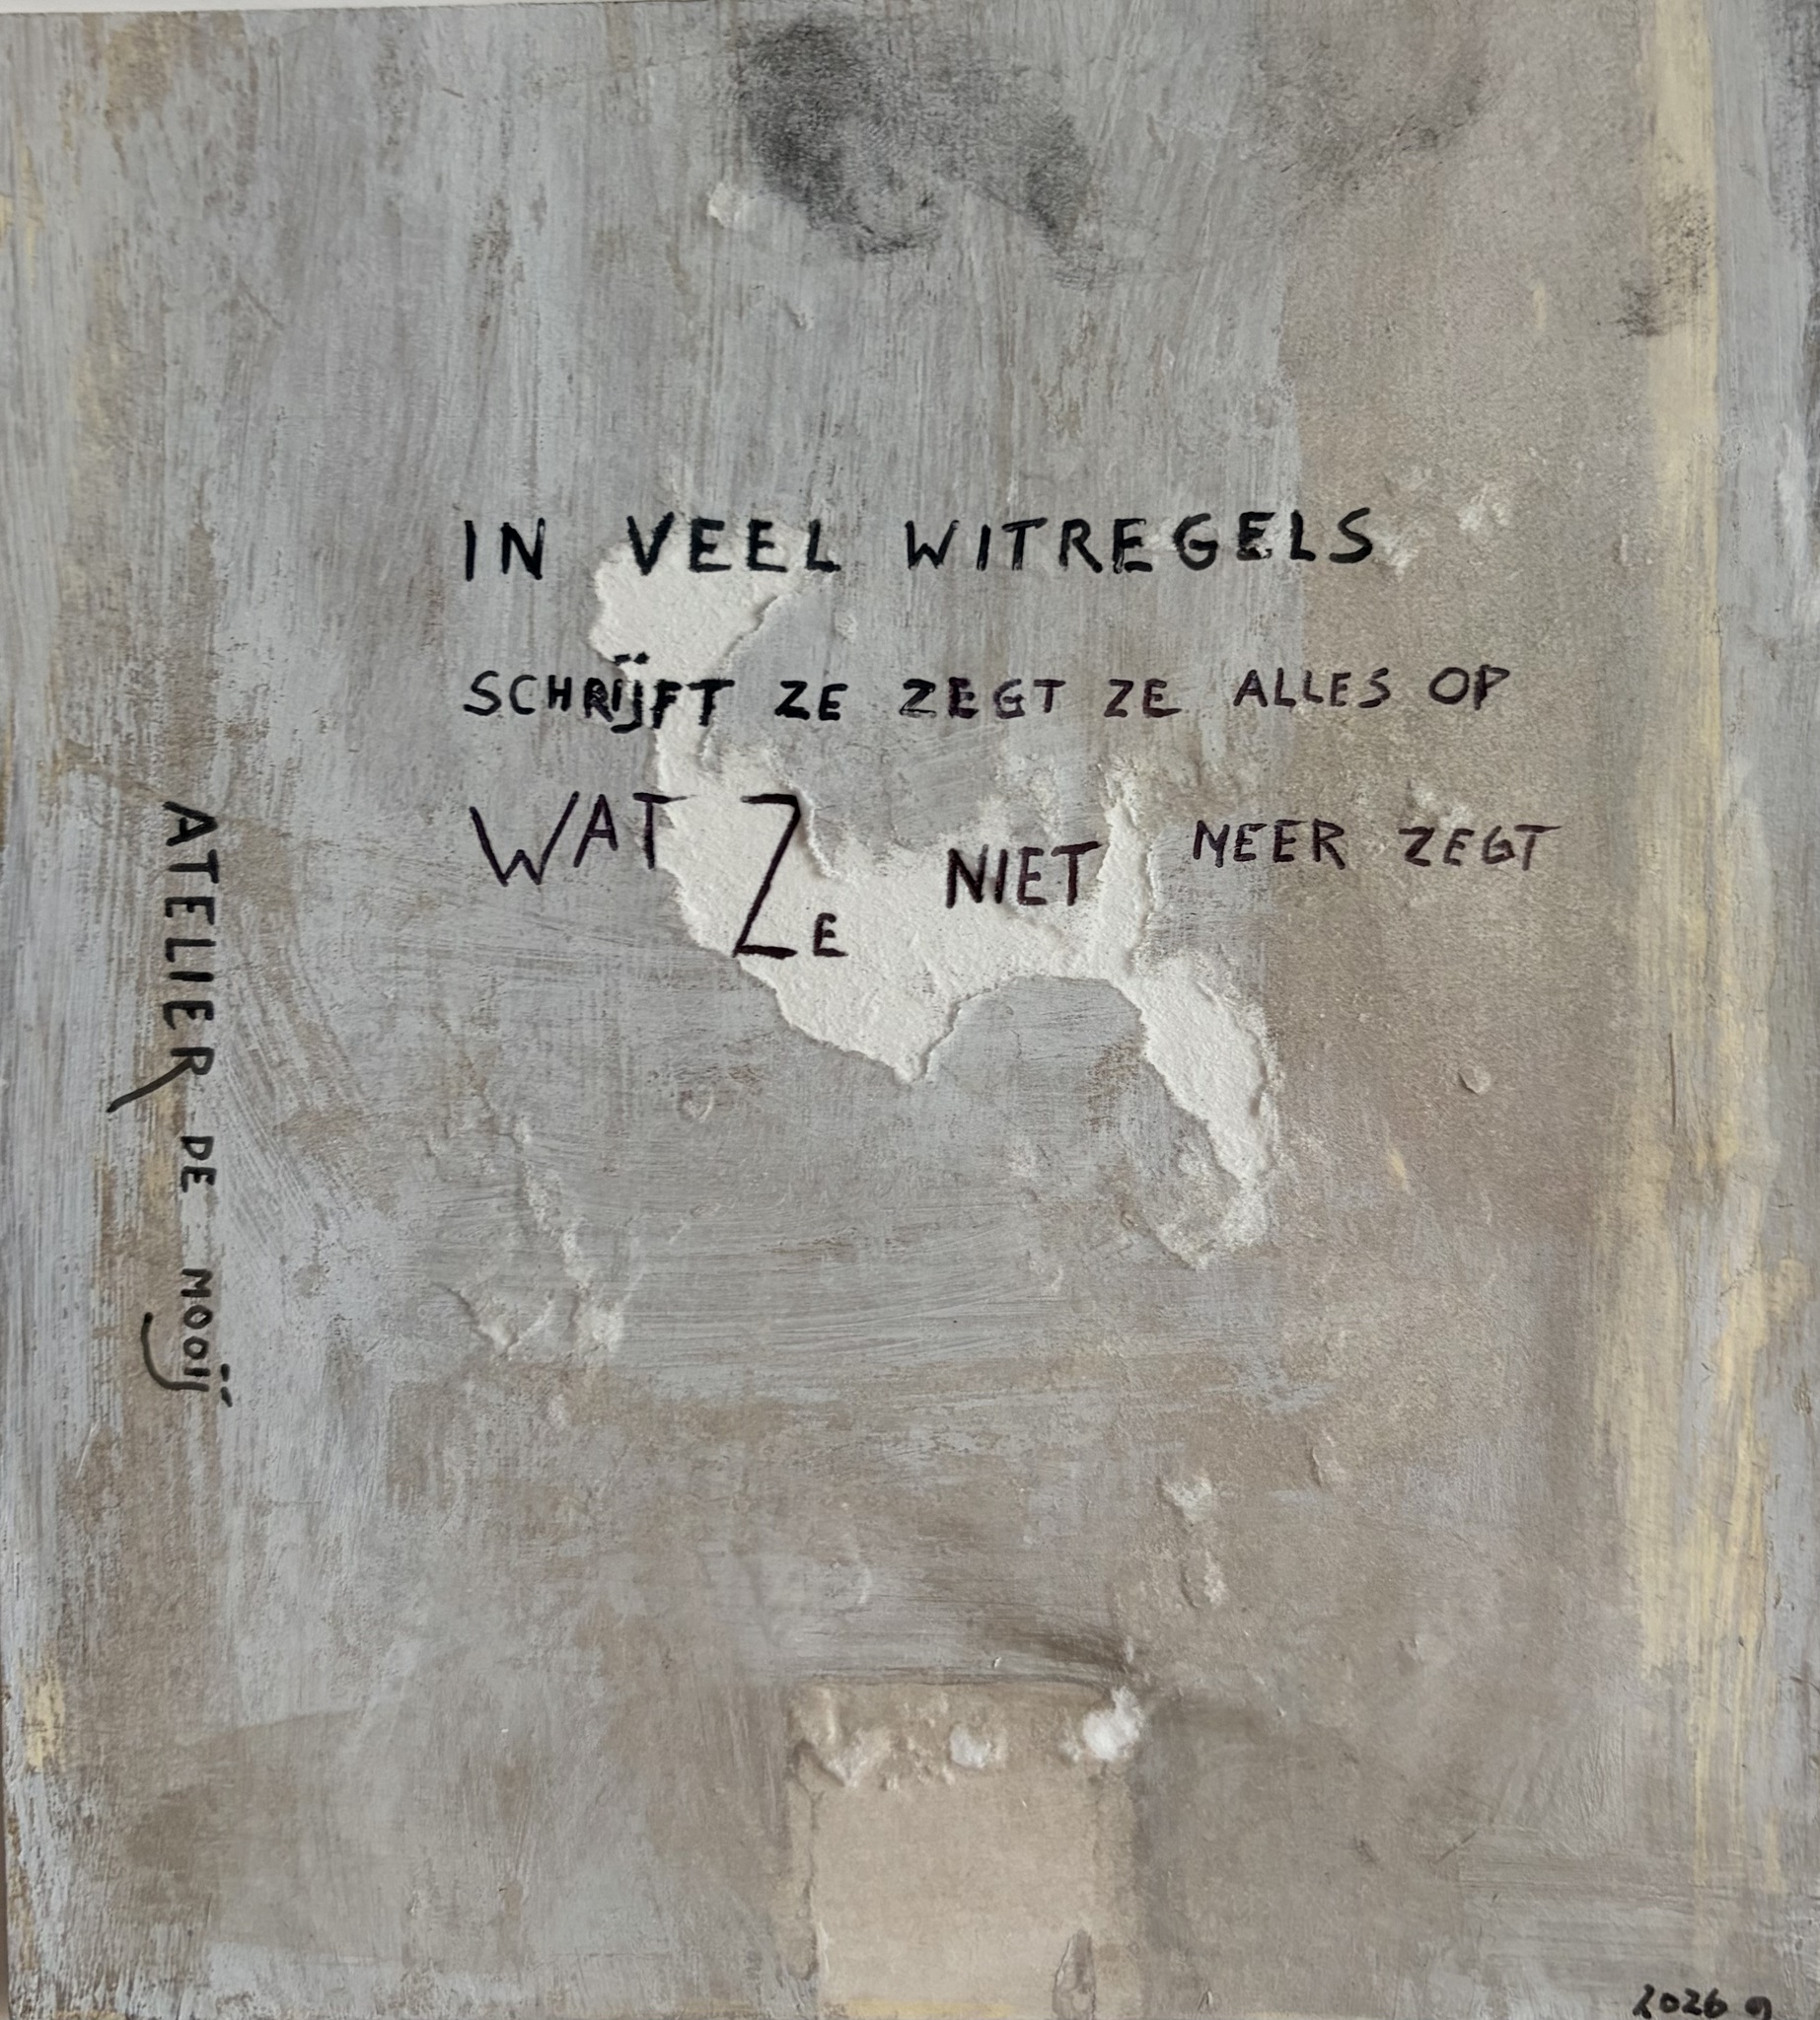 IN VEEL WITREGELS
SCHRIJFT ZE ZEGT ZE ALLES OP
WAT ZE NIET NEER ZEGT
ATELIER DE MOOIJ
2026 9